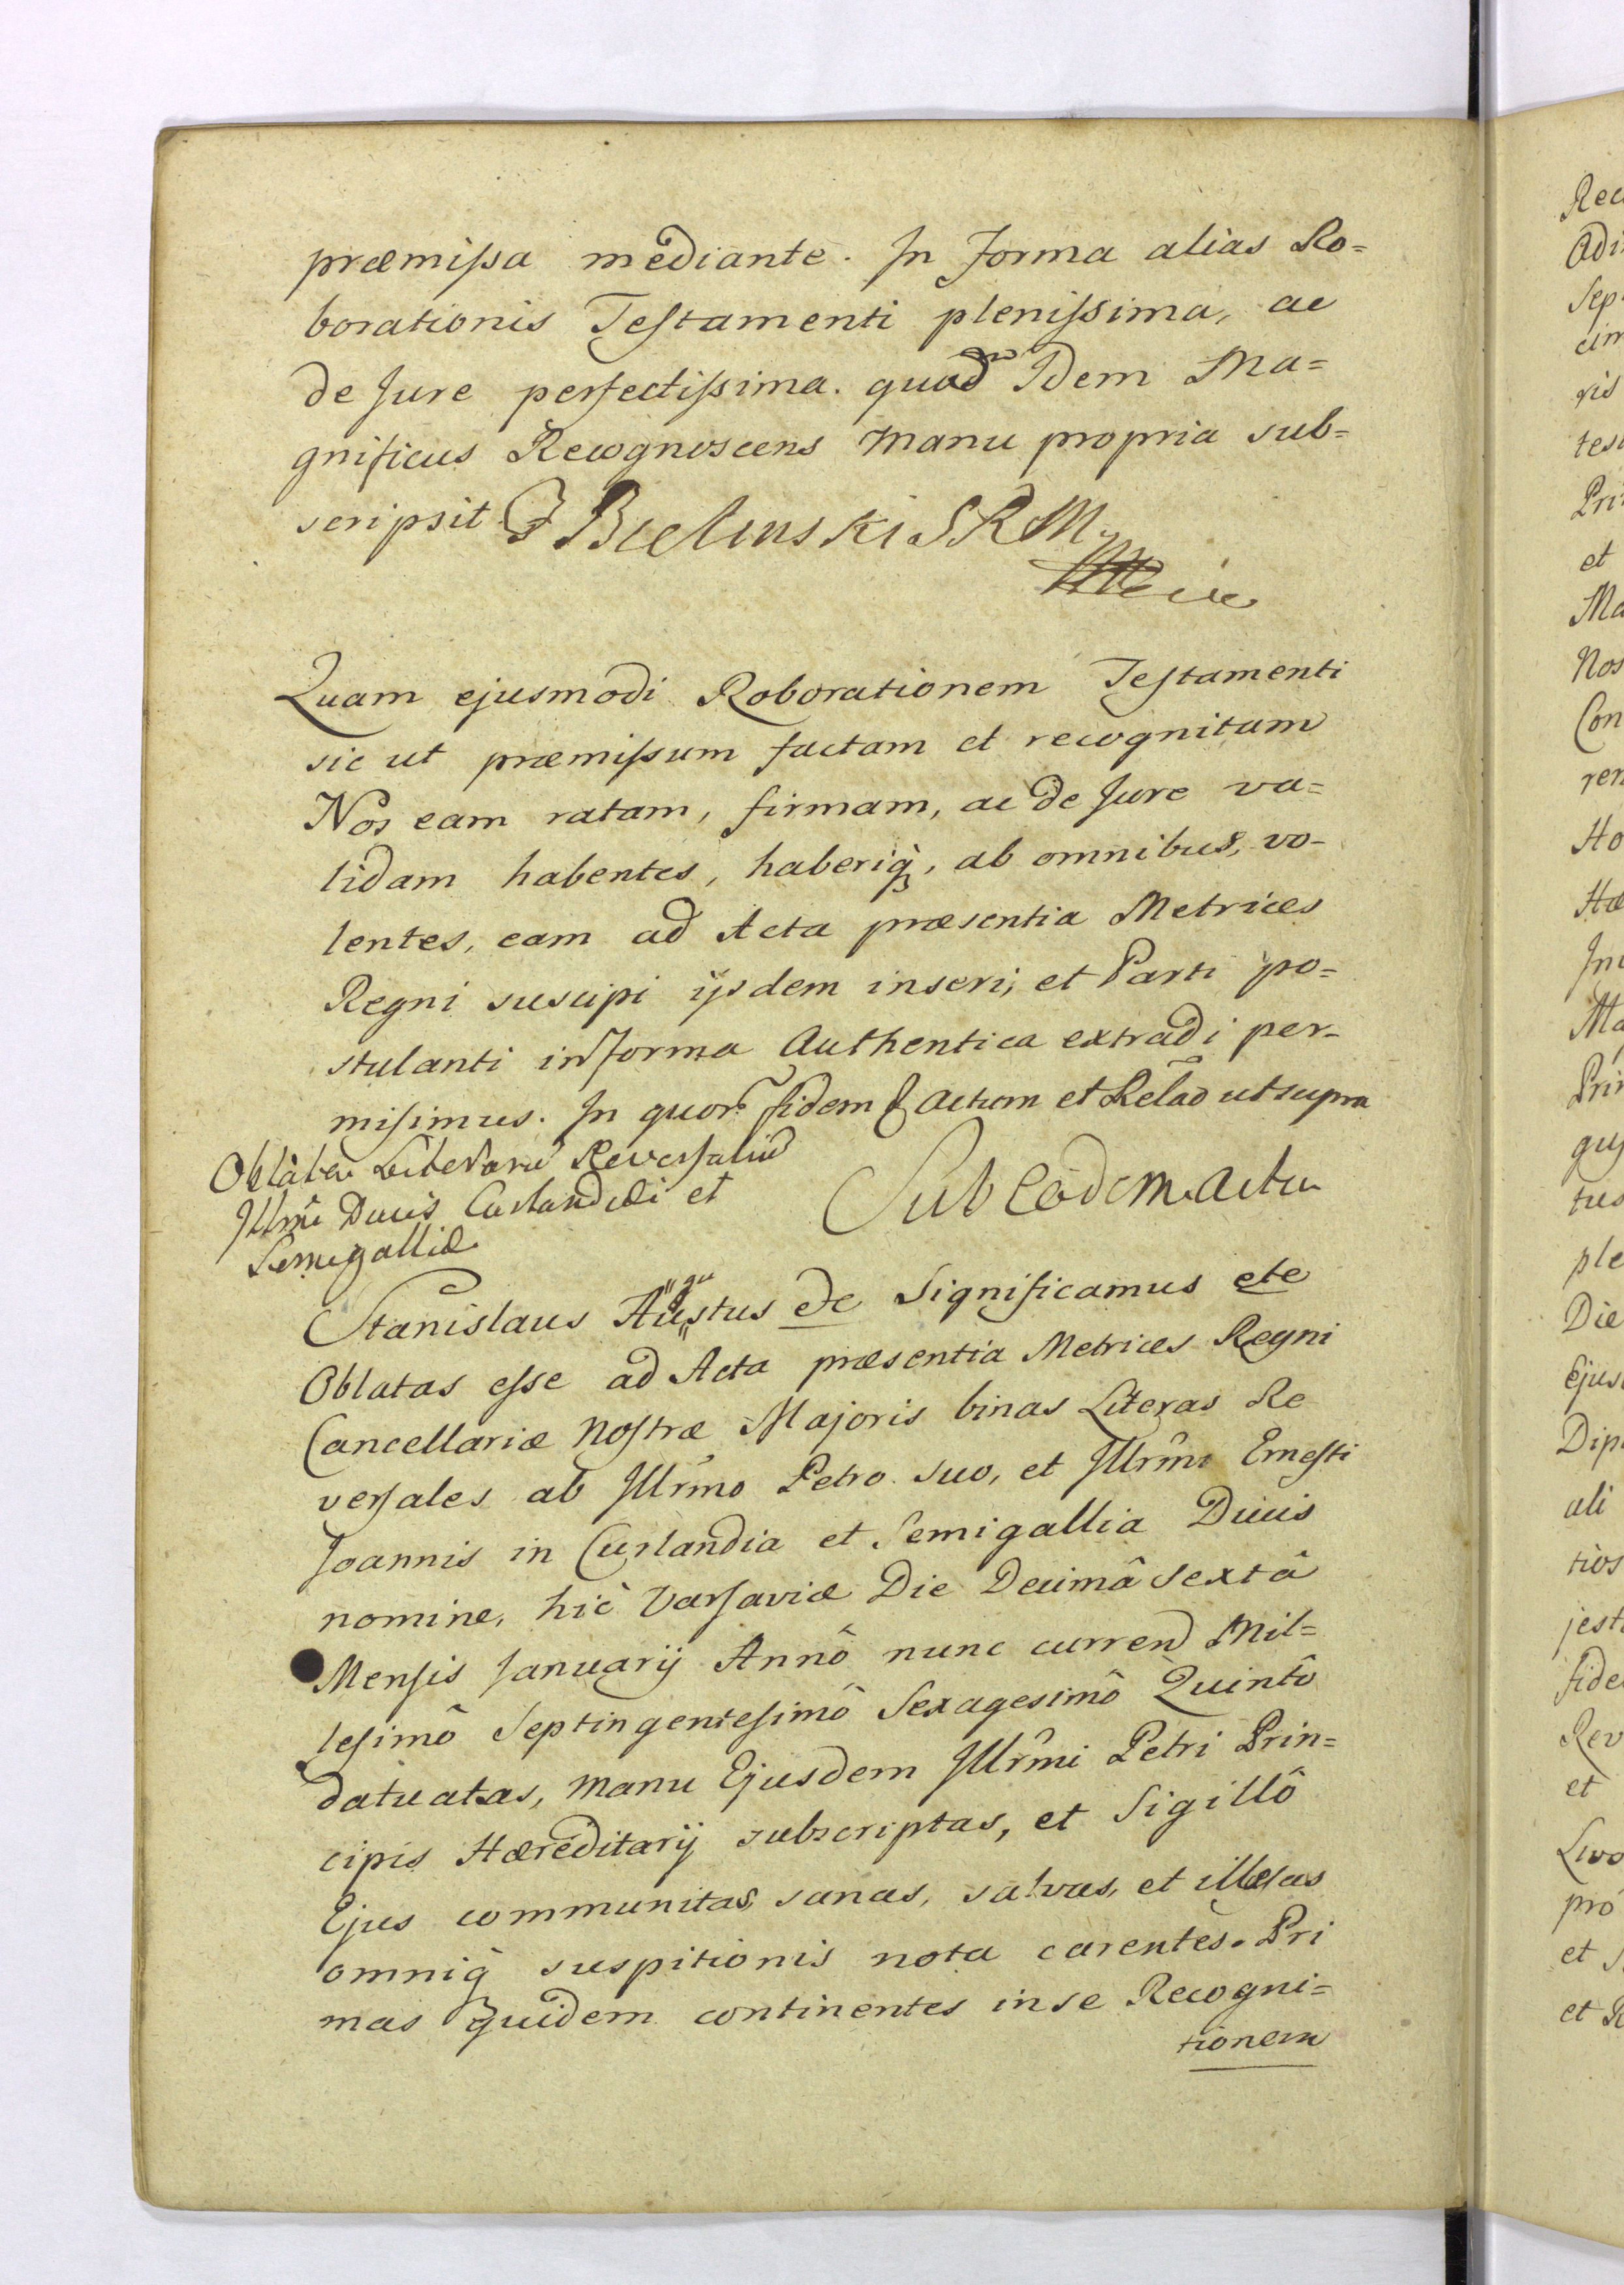 præmiſsa mediante. In Forma alias Ro=
borationis Teſtamenti pleniſsima, ac
de Jure perfectiſsima. quod Idem Ma=
gnificus Recognoscens Manu propria sub=
scripsit. F Bielinski S R M
Quam ejusmodi Roborationem Teſtamenti
sic ut præmiſsum factam et recognitam
Nos eam ratam, firmam, ac de Jure va=
lidam habentes, haberiq̀, ab omnibus, vo-
lentes, eam ad Acta præsentia Metrices
Regni suscipi ijsdem inseri, et Parti po=
stulanti in Forma Authentica extradi per-
miſimus. In quor. fidem & Actum et Relão ut supra
Oblata Literarũ Reverſaliũ
Illmi Ducis Curlandiæ et
Semigalliæ
Sub Eodem Actu
Stanislaus Augustus etc Significamus etc
Oblatas eſse ad Acta præsentia Metrices Regni
Cancellariæ Noſtræ Majoris binas Literas Re
verſales ab Illrmo Petro suo, et Illrmi Erneſti
Joannis in Curlandia et Semigallia Ducis
nomine, hic Varſaviæ Die Decimâ Sextâ
Menſis Januarij Annô nunc curren̄ Mil=
leſimô Septingenteſimô Sexagesimô Quintô
datuatas, Manu Ejusdem Illrmi Petri Prin=
cipis Hæreditarij subscriptas, et Sigillô
Ejus communitas, sanas, salvas, et illæsas
omniq̀ suspitionis nota carentes. Pri
mas Quidem continentes in se Recogni=
tionem
Rec
Adi
Sep
cim
ris
Pri
et
Ma
Nos
Con
ren
Ho
Hæ
Ma
Prin
tus
ple
Die
Ejus
Dip
ali
tios
jest
fide
Rev
et
Livo
pro
et
et R